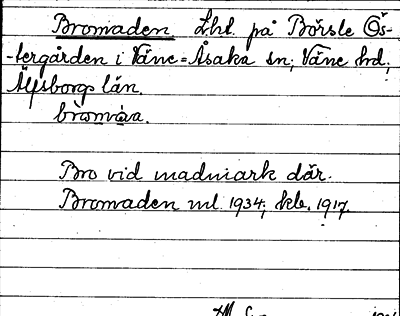 Bromaden Lht. på Börsle Ös-
-tergården i Väne-Åsaka sn; Väne hd,
Älvsborgs län.
bromáa.
Bro vid madmark där.
Bromaden ml. 1934; hlb. 1917.